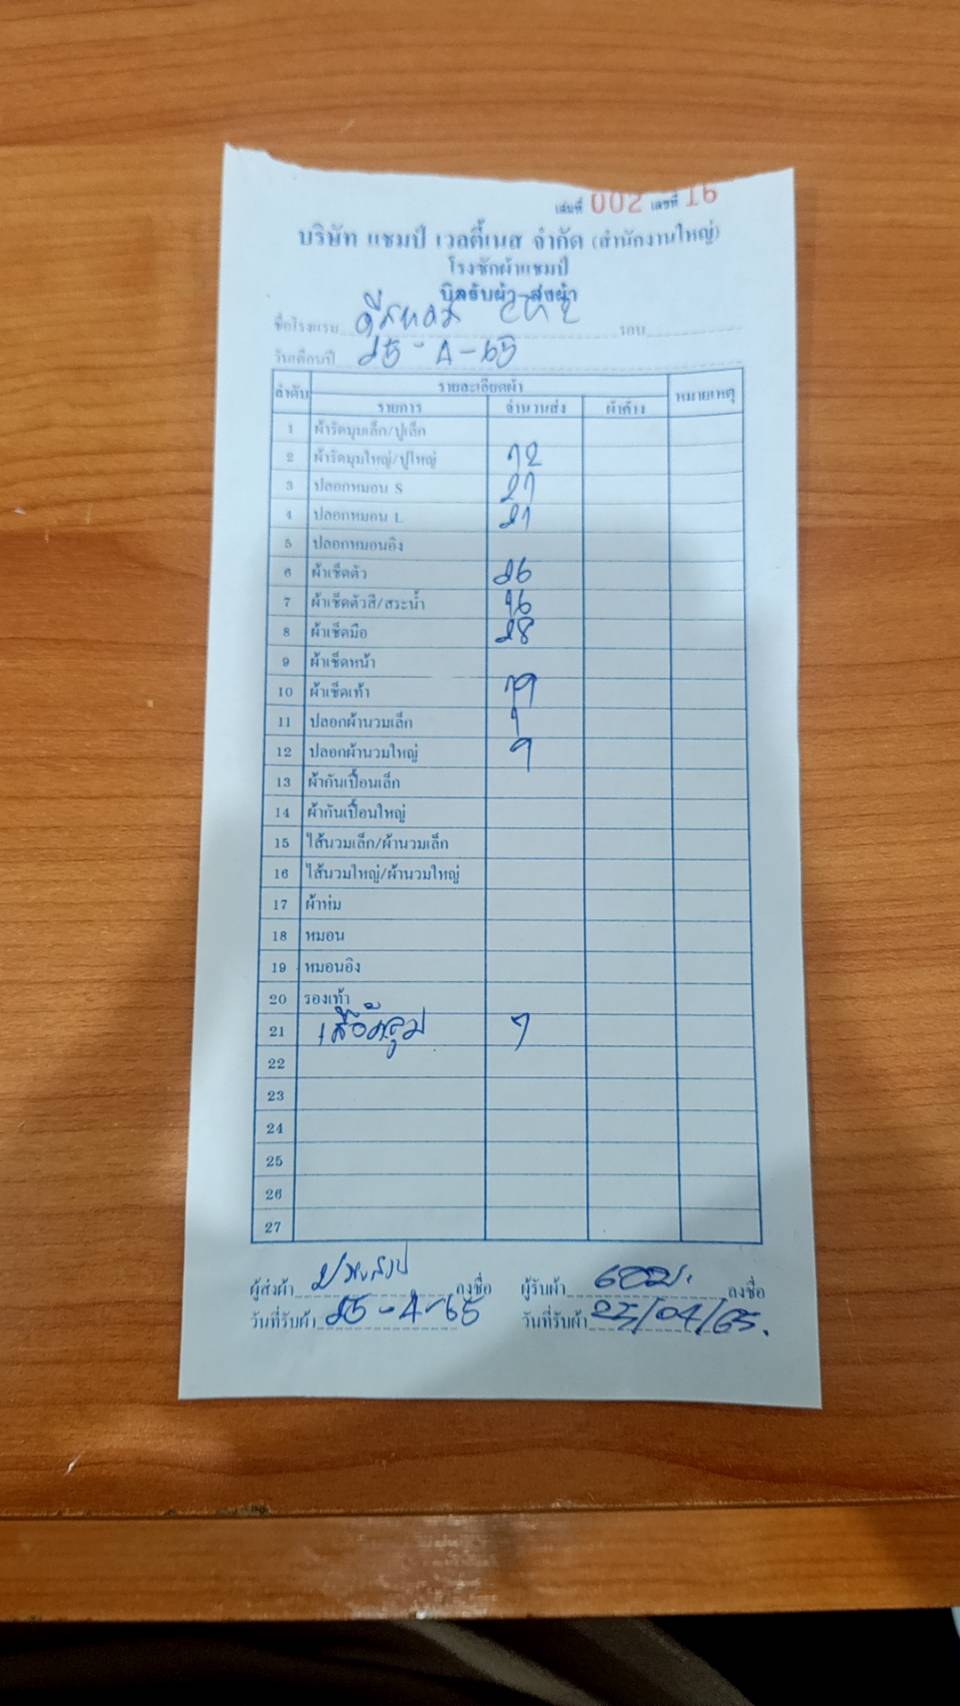 เล่มที่ 002 เลขที่ 16
บริษัท แชมป์ เวลตี้เนส จำกัด (สำนักงานใหญ่)
โรงซักผ้าแชมป์
บิลรับผ้า-ส่งผ้า
ชื่อโรงแรม รอบ
วันเดือนปี 25-4-65
ลำดับ รายละเอียดผ้า หมายเหตุ
รายการ จำนวนส่ง ผ้าค้าง
1 ผ้ารัดมุมเล็ก/ปูเล็ก
2 ผ้ารัดมุมใหญ่/ปูใหญ่ 12
3 ปลอกหมอน S 21
4 ปลอกหมอน L 21
5 ปลอกหมอนอิง
6 ผ้าเช็ดตัว 26
7 ผ้าเช็ดตัวสี/สระน้ำ 16
8 ผ้าเช็ดมือ 28
9 ผ้าเช็ดหน้า
10 ผ้าเช็ดเท้า 19
11 ปลอกผ้านวมเล็ก 1
12 ปลอกผ้านวมใหญ่ 9
13 ผ้ากันเปื้อนเล็ก
14 ผ้ากันเปื้อนใหญ่
15 ไส้นวมเล็ก/ผ้านวมเล็ก
16 ไส้นวมใหญ่/ผ้านวมใหญ่
17 ผ้าห่ม
18 หมอน
19 หมอนอิง
20 รองเท้า
21 เสื้อคลุม
22
23
24
25
26
27
ผู้ส่งผ้า ลงชื่อ ผู้รับผ้า ลงชื่อ
วันที่รับผ้า 25-4-65 วันที่รับผ้า 25/04/65.